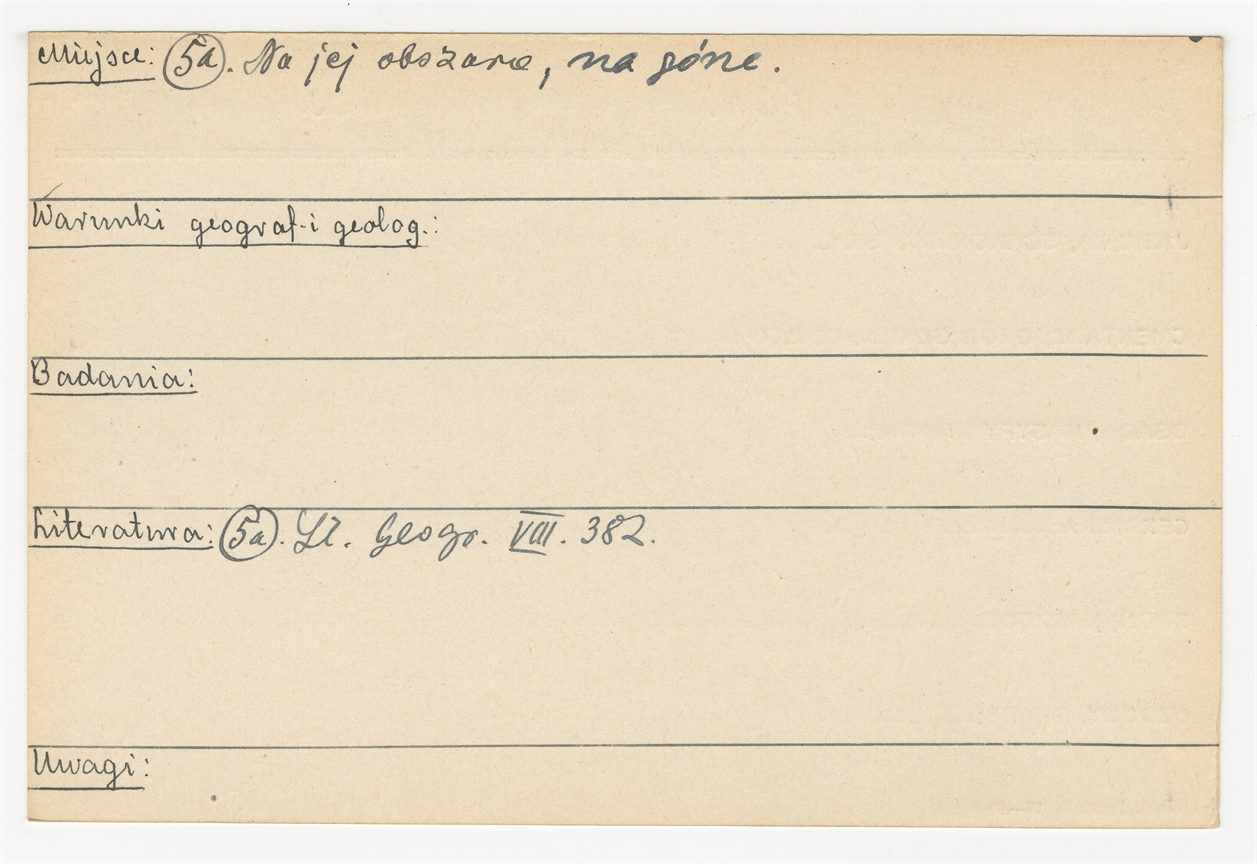 Miejsce: 5a. Na jej obszarze, na górze.
Warunki geograf. i geolog.:
Badania:
Literatura: 5a. Sł. Geogr. VIII. 382.
Uwagi: